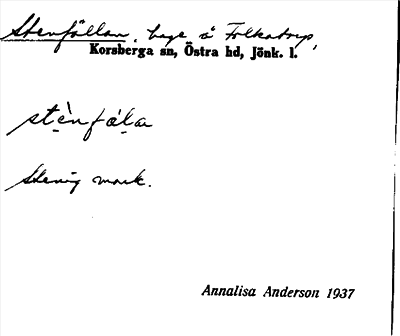 Stenfällan, hage å Folkatorp,
Korsberga sn, Östra hd, Jönk. l.
stènfäla
Stenig mark.
Annalisa Anderson 1937